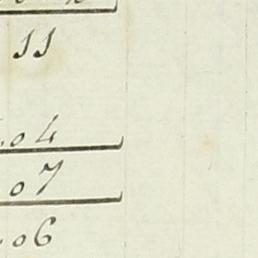 11
.04
07
.06